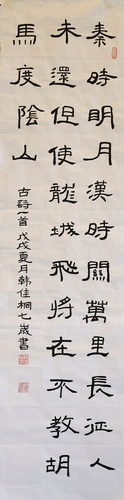 秦時明月漢時關萬里長征人
未還但使龍城飛將在不教胡
馬度陰山
古詩一首戊戌夏月韩佳桐七歲書